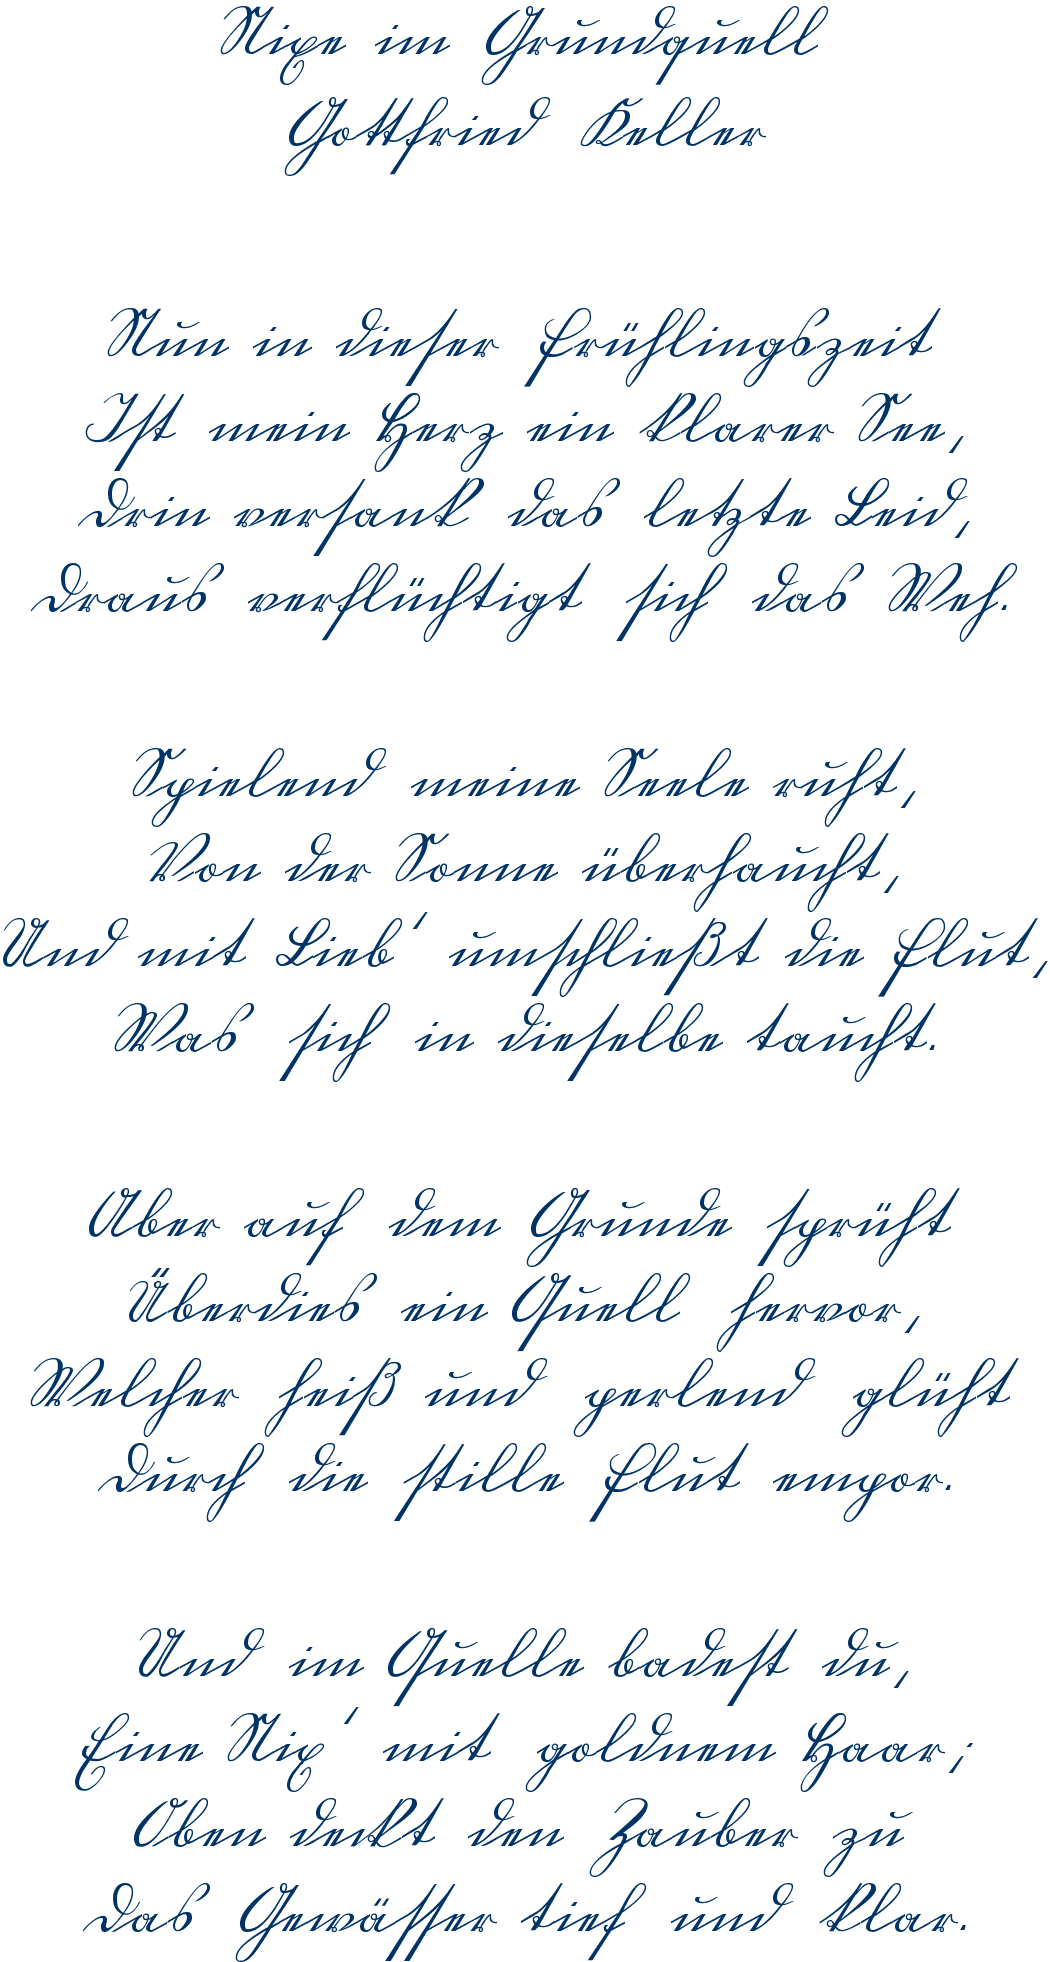 Nixe im Grundquell
Gottfried Keller
Nun in dieser Frühlingszeit
Ist mein Herz ein klarer See,
Drin versank das letzte Leid,
Draus verflüchtigt sich das Weh.
Spielend meine Seele ruht,
Von der Sonne überhaucht,
Und mit Lieb' umschließt die Flut,
Was sich in dieselbe taucht.
Aber auf dem Grunde sprüht
Überdies ein Quell hervor,
Welcher heiß und perlend glüht
Durch die stille Flut empor.
Und im Quelle badest du,
Eine Nix' mit goldnem Haar;
Oben deckt den Zauber zu
Das Gewässer tief und klar.